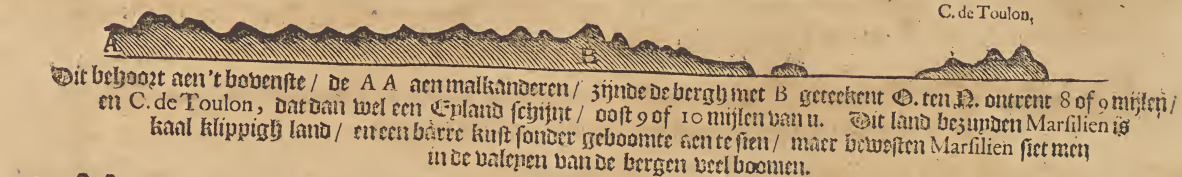 C. de Toulon,
A
B
Dit behoort aen 't bovenste / de A A aen malkanderen / zijnde de bergh met B geteekent O. ten N. ontrent 8 of 9 mijlen /
en C. de Toulon, dat dan wel een Eyland schijnt / oost 9 of 10 mijlen van u. Dit land bezuyden Marsilien is
kaal klippigh land / en een barre kust sonder geboomte aen te sien / maer bewesten Marsilien siet men
in de valeyen van de bergen veel boomen.